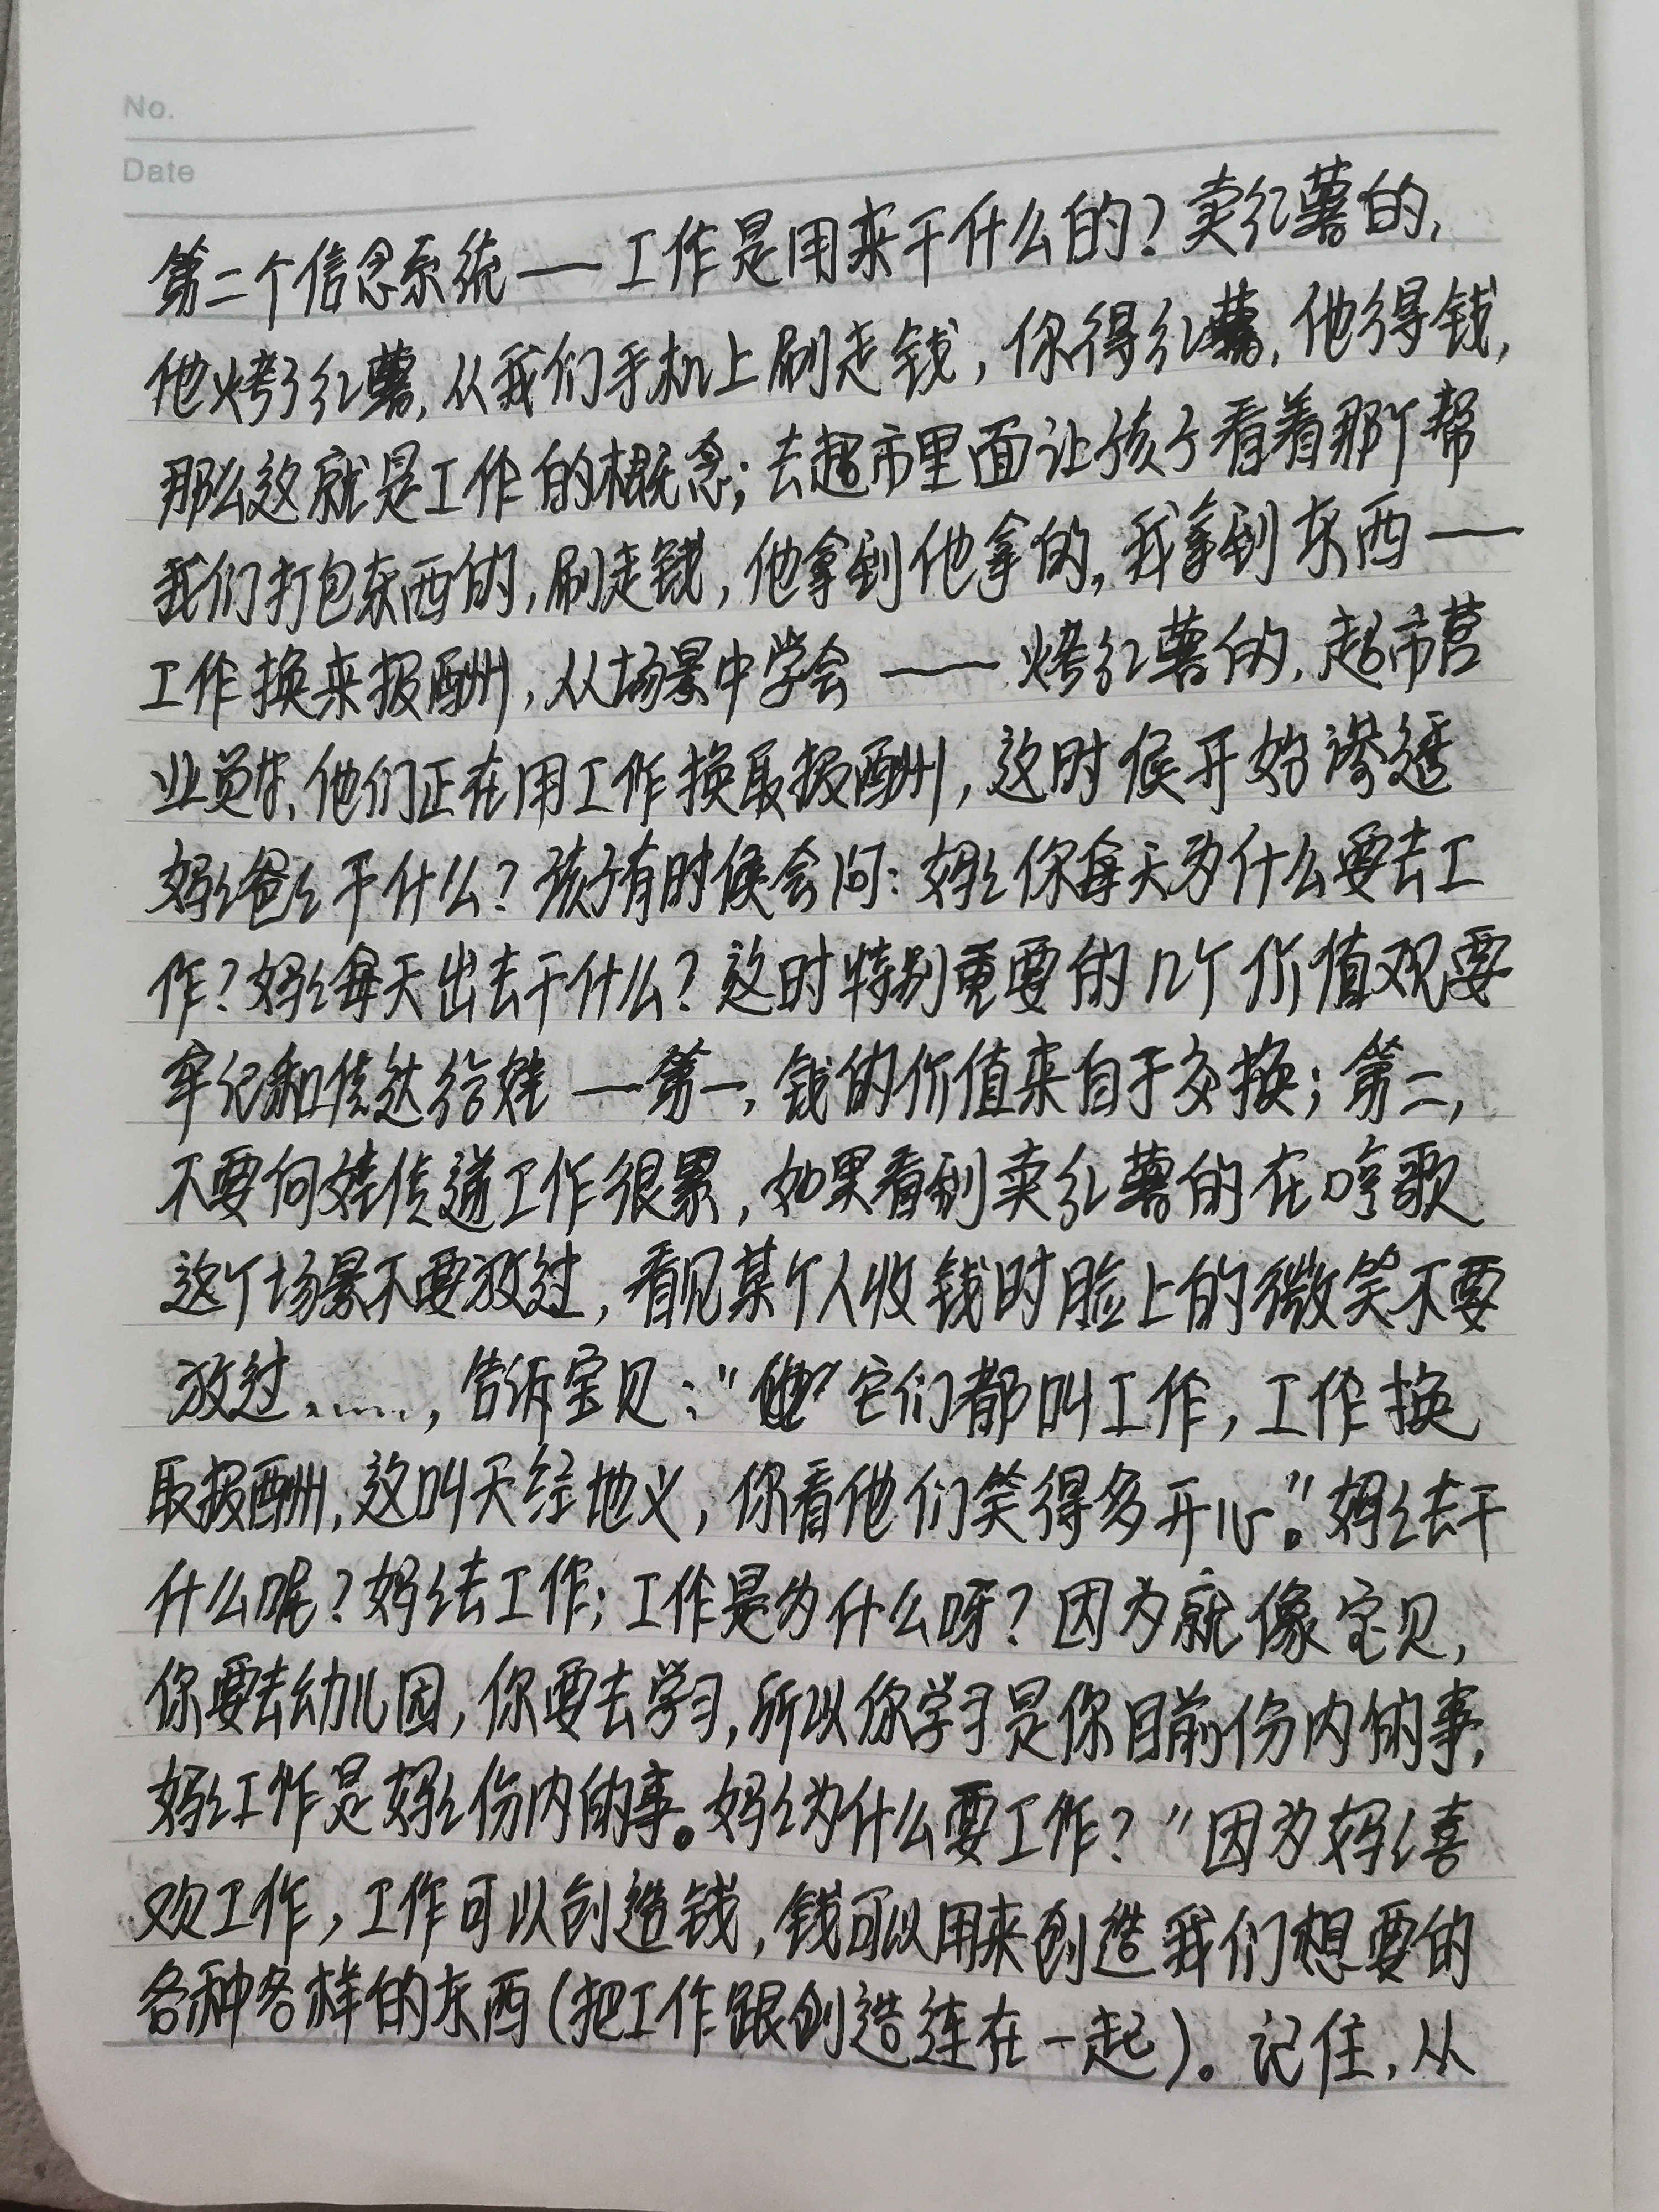 No.
Date
第二个信念系统——工作是用来干什么的？卖红薯的，
他烤了红薯，从我们手机上刷走钱，你得红薯，他得钱，
那么这就是工作的概念；去超市里面让孩子看着那个帮
我们打包东西的，刷走钱，他拿到他拿的，我拿到东西——
工作换来报酬，从场景中学会——烤红薯的，超市营
业员等，他们正在用工作换取报酬，这时候开始渗透
妈妈爸爸干什么？孩子有时候会问：妈妈你每天为什么要去工
作？妈妈每天出去干什么？这时特别重要的几个价值观要
牢记和传达给娃—第一，钱的价值来自于交换；第二，
不要向娃传递工作很累，如果看到卖红薯的在哼歌
这个场景不要放过，看见某个人收钱时脸上的微笑不要
放过……，告诉宝贝："它们都叫工作，工作换
取报酬，这叫天经地义，你看他们笑得多开心。"妈妈去干
什么呢？妈妈去工作；工作是为什么呀？因为就像宝贝，
你要去幼儿园，你要去学习，所以你学习是你目前份内的事，
妈妈工作是妈妈份内的事。妈妈为什么要工作？"因为妈妈喜
欢工作，工作可以创造钱，钱可以用来创造我们想要的
各种各样的东西（把工作跟创造连在一起）。记住，从